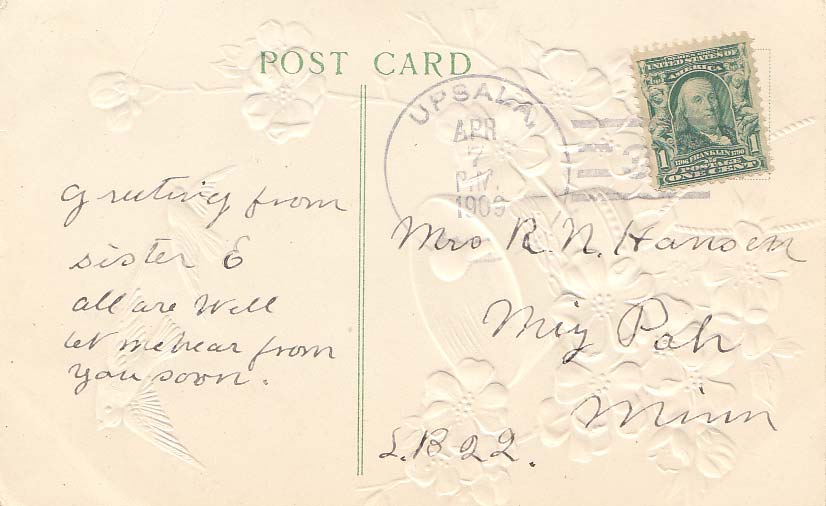 POST CARD
UPSALA,
APR
7
P.M.
1909
3
UNITED STATES OF
AMERICA
1 1
1706 FRANKLIN 1790
POSTAGE
ONE CENT
Greeting from
sister E
all are Well
let me hear from
you soon.
Mrs R. N. Hansen
Miz Pah
Minn
L.B 22.